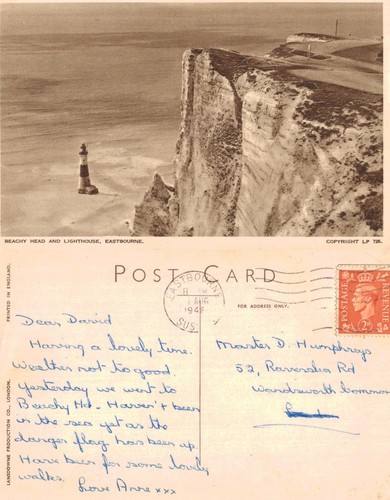 BEACHY HEAD AND LIGHTHOUSE, EASTBOURNE.
COPYRIGHT LP 725.
POST CARD
PRINTED IN ENGLAND.
LANSDOWNE PRODUCTION CO., LONDON.
FOR ADDRESS ONLY.
EASTBOURNE
AUG
SUSSEX
POSTAGE
REVENUE
Dear David
Having a lovely time.
Weather not to good.
Yesterday we went to
Beachy Hd. Haven't been
in the sea yet as the
danger flag has been up.
Have been for some lovely
walks.
Love Anne xxx
Master D. Humphreys
52, Ravenslea Rd
Wandsworth Common